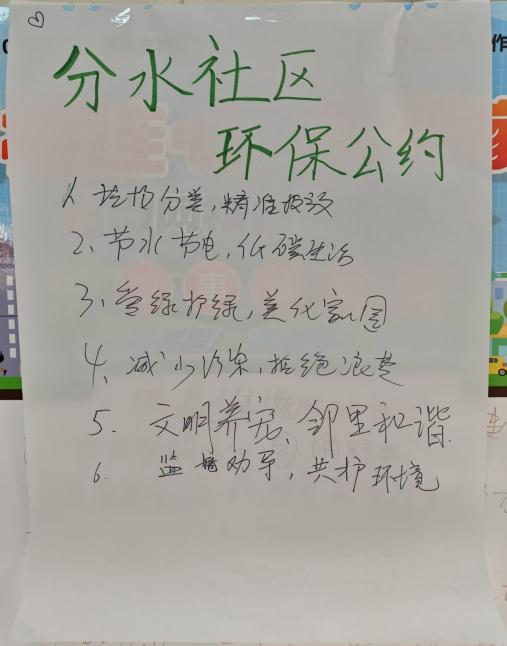 分水社区
环保公约
1、垃圾分类,精准投放
2、节水节电,低碳生活
3、爱绿护绿,美化家园
4、减少污染,拒绝浪费
5. 文明养宠、邻里和谐
6. 监督劝导,共护环境
作